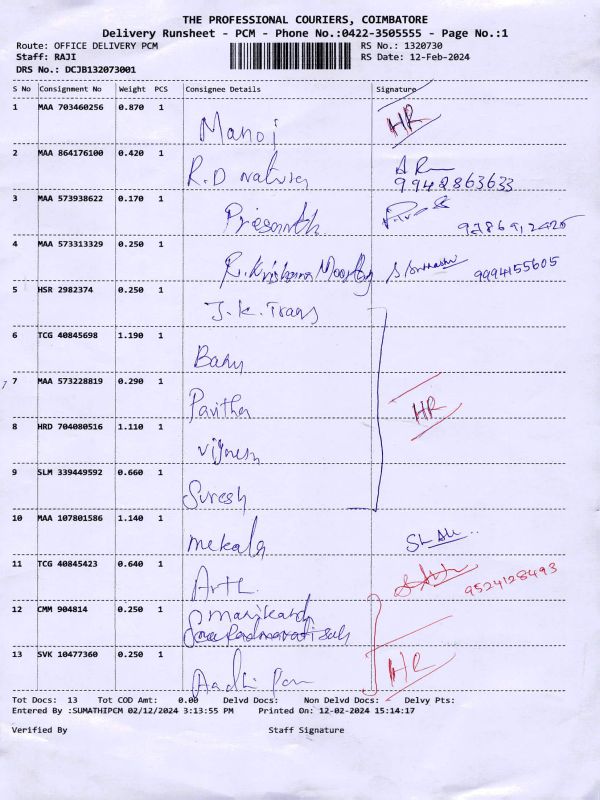 THE PROFESSIONAL COURIERS, COIMBATORE
Delivery Runsheet - PCM - Phone No.:0422-3505555 - Page No.:1
Route: OFFICE DELIVERY PCM RS No.: 1320730
Staff: RAJI RS Date: 12-Feb-2024
DRS No.: DCJB132073001
S No Consignment No Weight PCS Consignee Details Signature
1 MAA 703460256 0.870 1 Manoj HR
2 MAA 864176100 0.420 1 R.D
9942863633
3 MAA 573938622 0.170 1 Prasanth
4 MAA 573313329 0.250 1 R. Krishna Moorthy 9994155605
5 HSR 2982374 0.250 1 J.K. Trans
6 TCG 40845698 1.190 1 Banu
7 MAA 573228819 0.290 1 Pavithra HR
8 HRD 704080516 1.110 1 Vignesh
9 SLM 339449592 0.660 1 Suresh
10 MAA 107801586 1.140 1 mekala
11 TCG 40845423 0.640 1 9524128493
12 CMM 904814 0.250 1
13 SVK 10477360 0.250 1 HR
Tot Docs: 13 Tot COD Amt: 0.00 Delvd Docs: Non Delvd Docs: Delvy Pts:
Entered By :SUMATHIPCM 02/12/2024 3:13:55 PM Printed On: 12-02-2024 15:14:17
Verified By Staff Signature